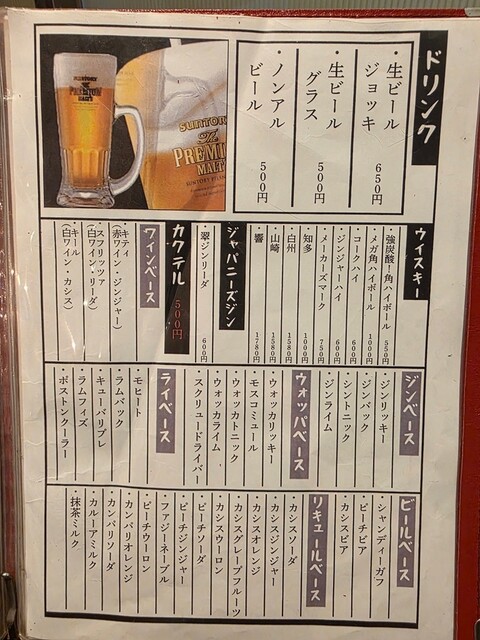 ドリンク
・生ビール
ジョッキ
650円
・生ビール
グラス
500円
・ノンアル
ビール
500円
SUNTORY
The
PREMIUM
MALT'S
SUNTORY
The
PREMI
MALT
ウイスキー
・強炭酸!角ハイボール 550円
・メガ角ハイボール 1000円
・コークハイ 600円
・ジンジャーハイ 600円
・メーカーズマーク 750円
・知多 1000円
・白州 1580円
・山崎 1580円
・響 1780円
ジャパニーズジン
・翠ジンソーダ 600円
カクテル 500円
ワインベース
・キティ
(赤ワイン・ジンジャー)
・スプリッツァ
(白ワイン・ソーダ)
・キール
(白ワイン・カシス)
ジンベース
・ジンリッキー
・ジンバック
・ジントニック
・ジンライム
ウォッカベース
・ウォッカリッキー
・モスコミュール
・ウォッカトニック
・ウォッカライム
・スクリュードライバー
ライベース
・モヒート
・ラムバック
・キューバリブレ
・ラムフィズ
・ボストンクーラー
ビールベース
・シャンディーガフ
・ピーチビア
・カシスビア
リキュールベース
・カシスソーダ
・カシスジンジャー
・カシスオレンジ
・カシスグレープフルーツ
・カシスウーロン
・ピーチソーダ
・ピーチジンジャー
・ファジーネーブル
・ピーチウーロン
・カンパリオレンジ
・カンパリソーダ
・カルーアミルク
・抹茶ミルク